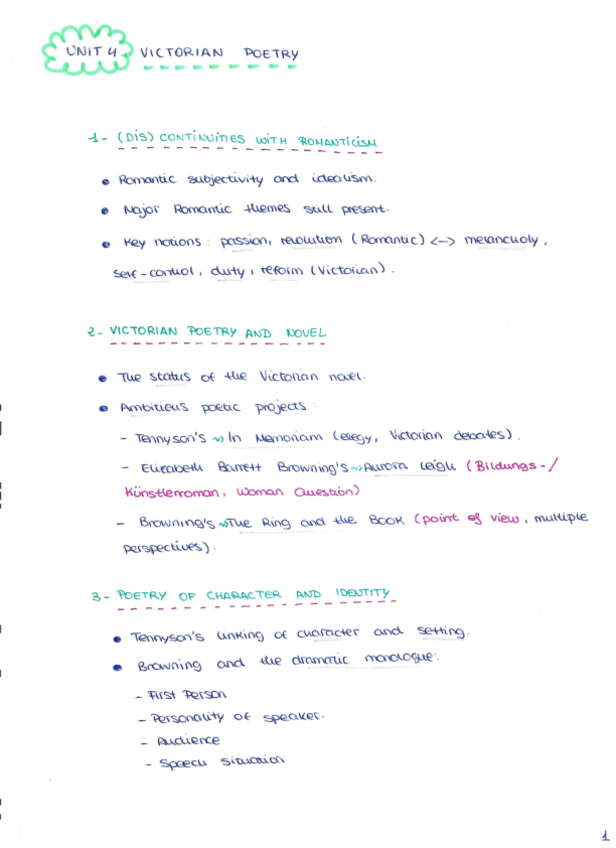 UNIT 4 VICTORIAN POETRY
1- (DIS) CONTINUITIES WITH ROMANTICISM
• Romantic subjectivity and idealism.
• Major Romantic themes still present.
• Key notions: passion, revolution (Romantic) <--> melancholy,
self-control, duty, reform (Victorian).
2- VICTORIAN POETRY AND NOVEL
• The status of the Victorian novel.
• Ambitious poetic projects:
- Tennyson's ~> In Memoriam (elegy, Victorian debates).
- Elizabeth Barrett Browning's ~> Aurora Leigh (Bildungs-/
Künstlerroman, Woman Question)
- Browning's ~> The Ring and the Book (point of view, multiple
perspectives).
3- POETRY OF CHARACTER AND IDENTITY
• Tennyson's linking of character and setting.
• Browning and the dramatic monologue:
- First Person
- Personality of speaker.
- Audience
- Speech situation
1